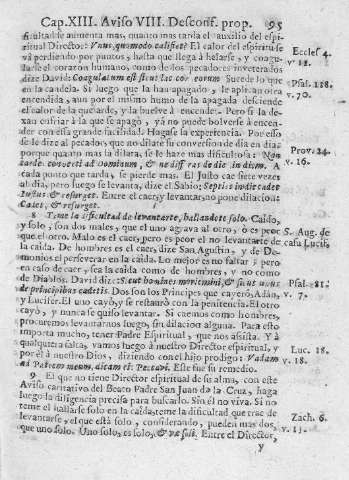 Cap.XIII. Aviso VIII. Desconf. prop. 95
ficultad se aumenta mas, quanto mas tarda el auxilio del espi-
ritual Director: Vnus, quomodo calefiet? El calor del espiritu se
va perdiendo por puntos, hasta que llega à helarse, y coagu-
larse el corazon humano, como de los pecadores inveterados
dize David: Coagulatum est sicut lac cor eorum. Sucede lo que
en la candela. Si luego que la han apagado, le aplican otra
encendida, aun por el mismo humo de la apagada desciende
el calor de la que arde, y la buelve à encender. Pero si la de-
xan enfriar à la que se apagò, yà no puede bolverse à encen-
der con essa grande facilidad. Hagase la experiencia. Por esso
se le dize al pecador, que no dilate su conversion de dia en dia;
porque quanto mas la dilara, se le haze mas dificultosa: Non
tardes converti ad Dominum, & ne differas de die in diem. A
cada punto que tarda, se pierde mas. El Justo cae siete vezes
al dia, pero luego se levanta, dize el Sabio: Septies in die cadet
Iustus & resurget. Entre el caer, y levantar, no pone dilacion:
Cadet, & resurget.
8 Teme la dificultad de levantarte, hallandote solo. Caido,
y solo, son dos males, que el uno agrava al otro, ò es peor
que el otro. Malo es el caer, pero es peor el no levantarte de
la caida. De hombres es el caer, dize San Agustin, y de De-
monios el perseverar en la caida. Lo mejor es no faltar; pero
en caso de caer, sea la caida como de hombres, y no como
de Diablos. David dize: Sicut homines moriemini, & sicut unus
de principibus cadetis. Dos son los Principes que cayerò, Adàn,
y Lucifer. El uno cayò, y se restaurò con la penitencia. El otro
cayò, y nunca se quiso levantar. Si caemos como hombres,
procuremos levantarnos luego, sin dilacion alguna. Para esto
importa mucho, tener Padre Espiritual, que nos assista. Y à
qualquiera falta, vamos luego à nuestro Director espiritual, y
por èl à nuestro Dios, diziendo con el hijo prodigo: Vadam
ad Patrem meum, dicam ei: Peccavi. Este fue su remedio.
9 El que no tiene Director espiritual de su alma, con este
Aviso caritativo del Beato Padre San Juan de la Cruz, haga
luego la diligencia precisa para buscarlo. Sin èl no viva. Si no
teme el hallarse solo en la caida, tema la dificultad que trae de
levantarse, el que està solo, considerando, pueden mas dos,
que uno solo. Uno solo, es solo, & væ soli. Entre el Director,
y
Eccles 4.
v 11.
Psal. 118.
v. 70.
Prov. 24.
v. 16.
S. Aug. de
casu Lucif.
Psal. 81.
v. 7.
Luc. 18.
v. 18.
Zach. 6.
v. 13.